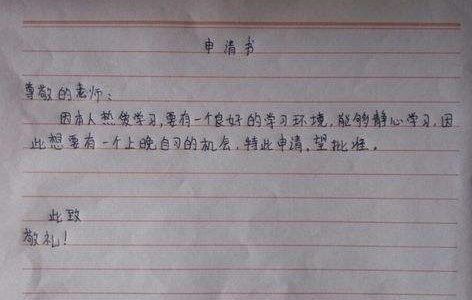 申请书
尊敬的老师：
因本人热爱学习，要有一个良好的学习环境，能够静心学习，因
此想要有一个上晚自习的机会，特此申请，望批准。
此致
敬礼！